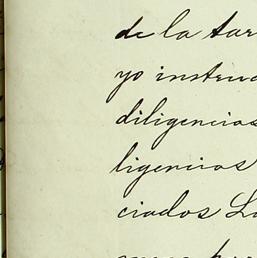 de la tar
yo instruc
diligencias
ligencias
ciados L